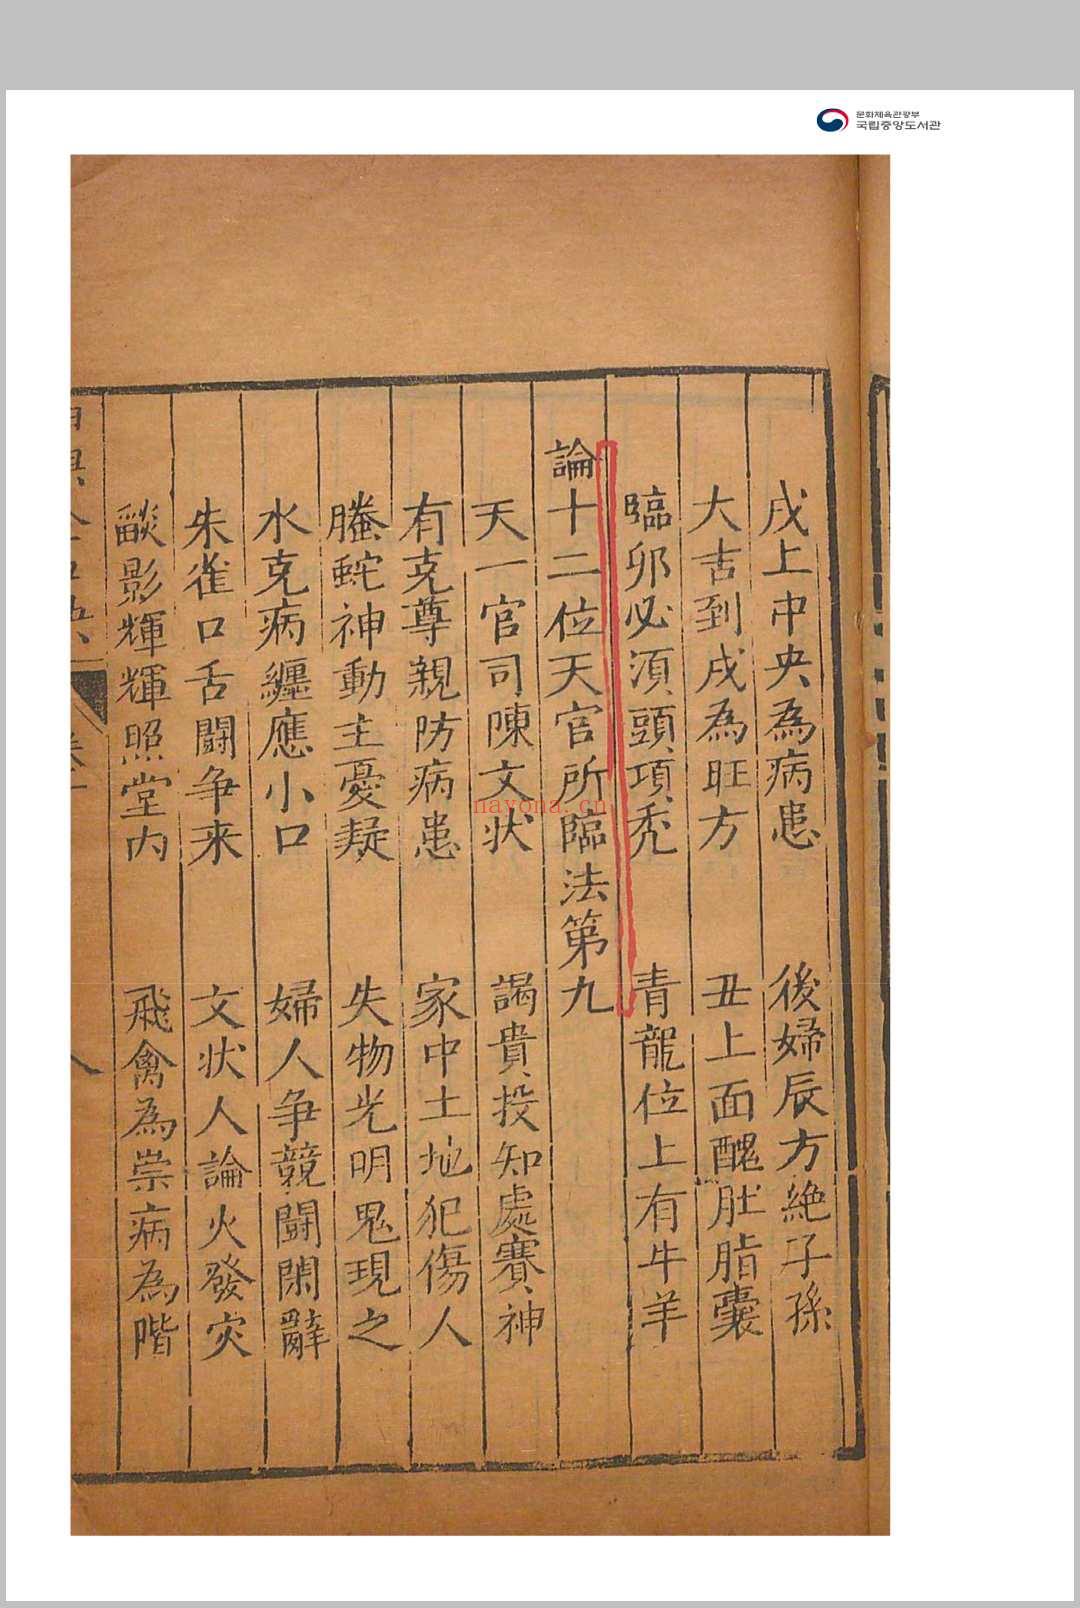 문화체육관광부
국립중앙도서관
戌上中央為病患 後婦辰方絶子孫
大吉到戌為旺方 丑上面醜肚脂囊
臨卯必須頭項禿 青龍位上有牛羊
論十二位天官所臨法第九
天一官司陳文状 謁貴投知處賽神
有克尊親防病患 家中土地犯傷人
螣蛇神動主憂疑 失物光明鬼現之
水克病纒應小口 婦人争競鬪閙辭
朱雀口舌鬪争来 文状人論火發灾
燄影輝輝照堂内 飛禽為祟病為階
nayona.cn